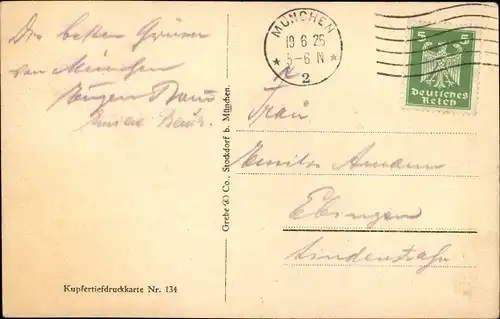 Die besten Grüsse
von München
Eugen
MÜNCHEN
19 6 25
5-6 N
2
5 5
Deutsches
Reich
Frau
Ebingen
Lindenstraße
Grebe & Co., Stockdorf b. München.
Kupfertiefdruckkarte Nr. 134